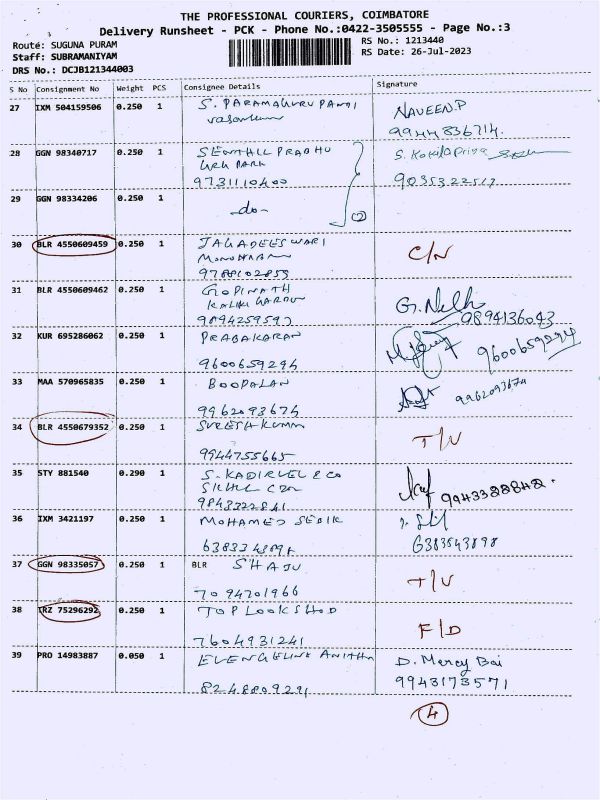 THE PROFESSIONAL COURIERS, COIMBATORE
Delivery Runsheet - PCK - Phone No.:0422-3505555 - Page No.:3
Route: SUGUNA PURAM RS No.: 1213440
Staff: SUBRAMANIYAM RS Date: 26-Jul-2023
DRS No.: DCJB121344003
S No Consignment No Weight PCS Consignee Details Signature
27 IXM 504159506 0.250 1 S. PARAMAGURU PANDI NAVEEN.P
9944836714.
28 GGN 98340717 0.250 1 SENTHIL PRABHU S. Kokilapriya
PARK
9731110400 9035322517
29 GGN 98334206 0.250 1 -do- 2
30 BLR 4550609459 0.250 1 JAGADEESWARI C/N
MANOHARAN
9788102859
31 BLR 4550609462 0.250 1 GOPINATH
9894259597 9894136043
32 KUR 695286062 0.250 1 PRABAKARAN
9600659294 9600659294
33 MAA 570965835 0.250 1 BOOPALAN
9962093674 9962093674
34 BLR 4550679352 0.250 1 SURESH KUMAR T/V
9944755665
35 STY 881540 0.290 1 S. KADIRVEL & CO
9843322841 9943388848.
36 IXM 3421197 0.250 1 MOHAMED SEDIK
6383543898
37 GGN 98335057 0.250 1 BLR SHAJU T/V
7094701966
38 TRZ 75296292 0.250 1 TOP LOOK SHOP F/D
7604931241
39 PRO 14983887 0.050 1 EVENGELINE ANITHA D. Mercy Bai
8248809291 9943173571
4